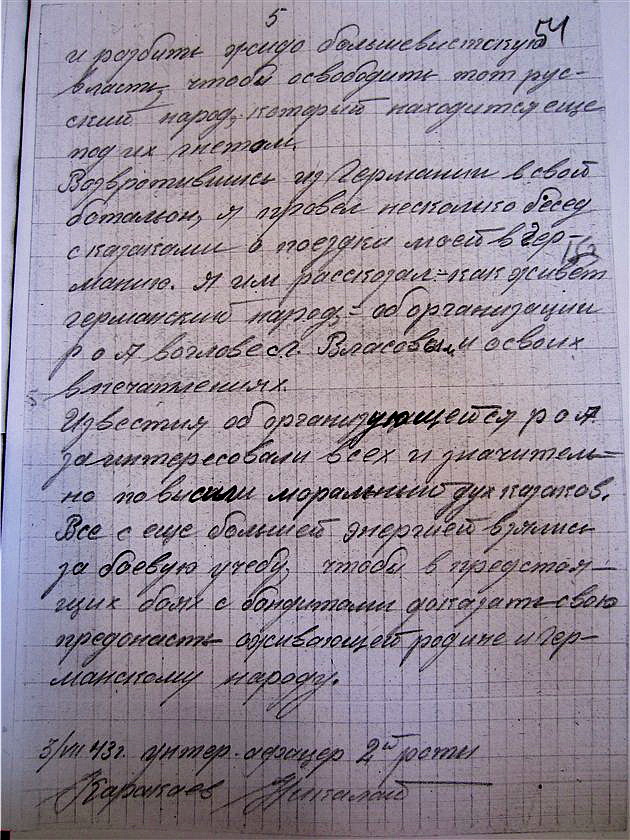 5
51
и разбить жидо большевистскую
власть, чтобы освободить тот рус-
ский народ, который находится еще
под их гнетом.
Возвротившись из Германии в свой
баталион, я провел несколько бесед
с казаками о поездки моей в Гер-
манию. Я им рассказал:- как живет
германский народ, - об организации
Р О А воглове с г. Власовым и о своих
впечатлениях.
Известия об организующейся Р О А.
заинтересовали всех и значитель-
но повысили моральный дух казаков.
Все с еще большей энергией взялись
за боевую учебу, чтобы в предстоя-
щих боях с бандитами доказать свою
преданость оживающей родине и Гер-
манскому народу.
3/VII 43г. унтер-афацер 2й роты
Каракаев Николай